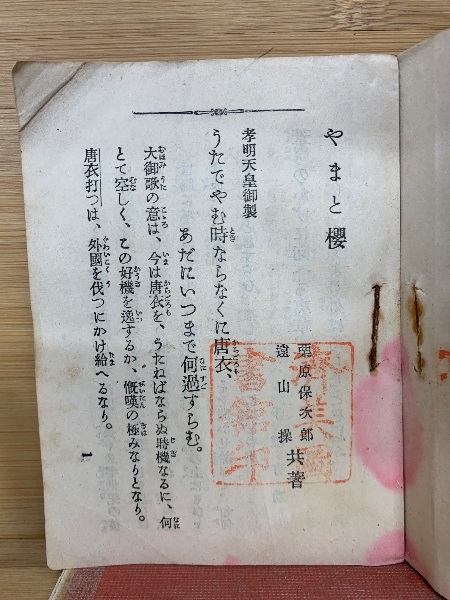 やまと櫻
栗原保次郎
遠山操
共著
孝明天皇御製
うたでやむ時ならなくに唐衣、
あだにいつまで何過すらむ。
大御歌の意は、今は唐衣を、うたねばならぬ時機なるに、何
とて空しく、この好機を逸するか、慨嘆の極みなりとなり。
唐衣打つは、外國を伐つにかけ給へるなり。
1